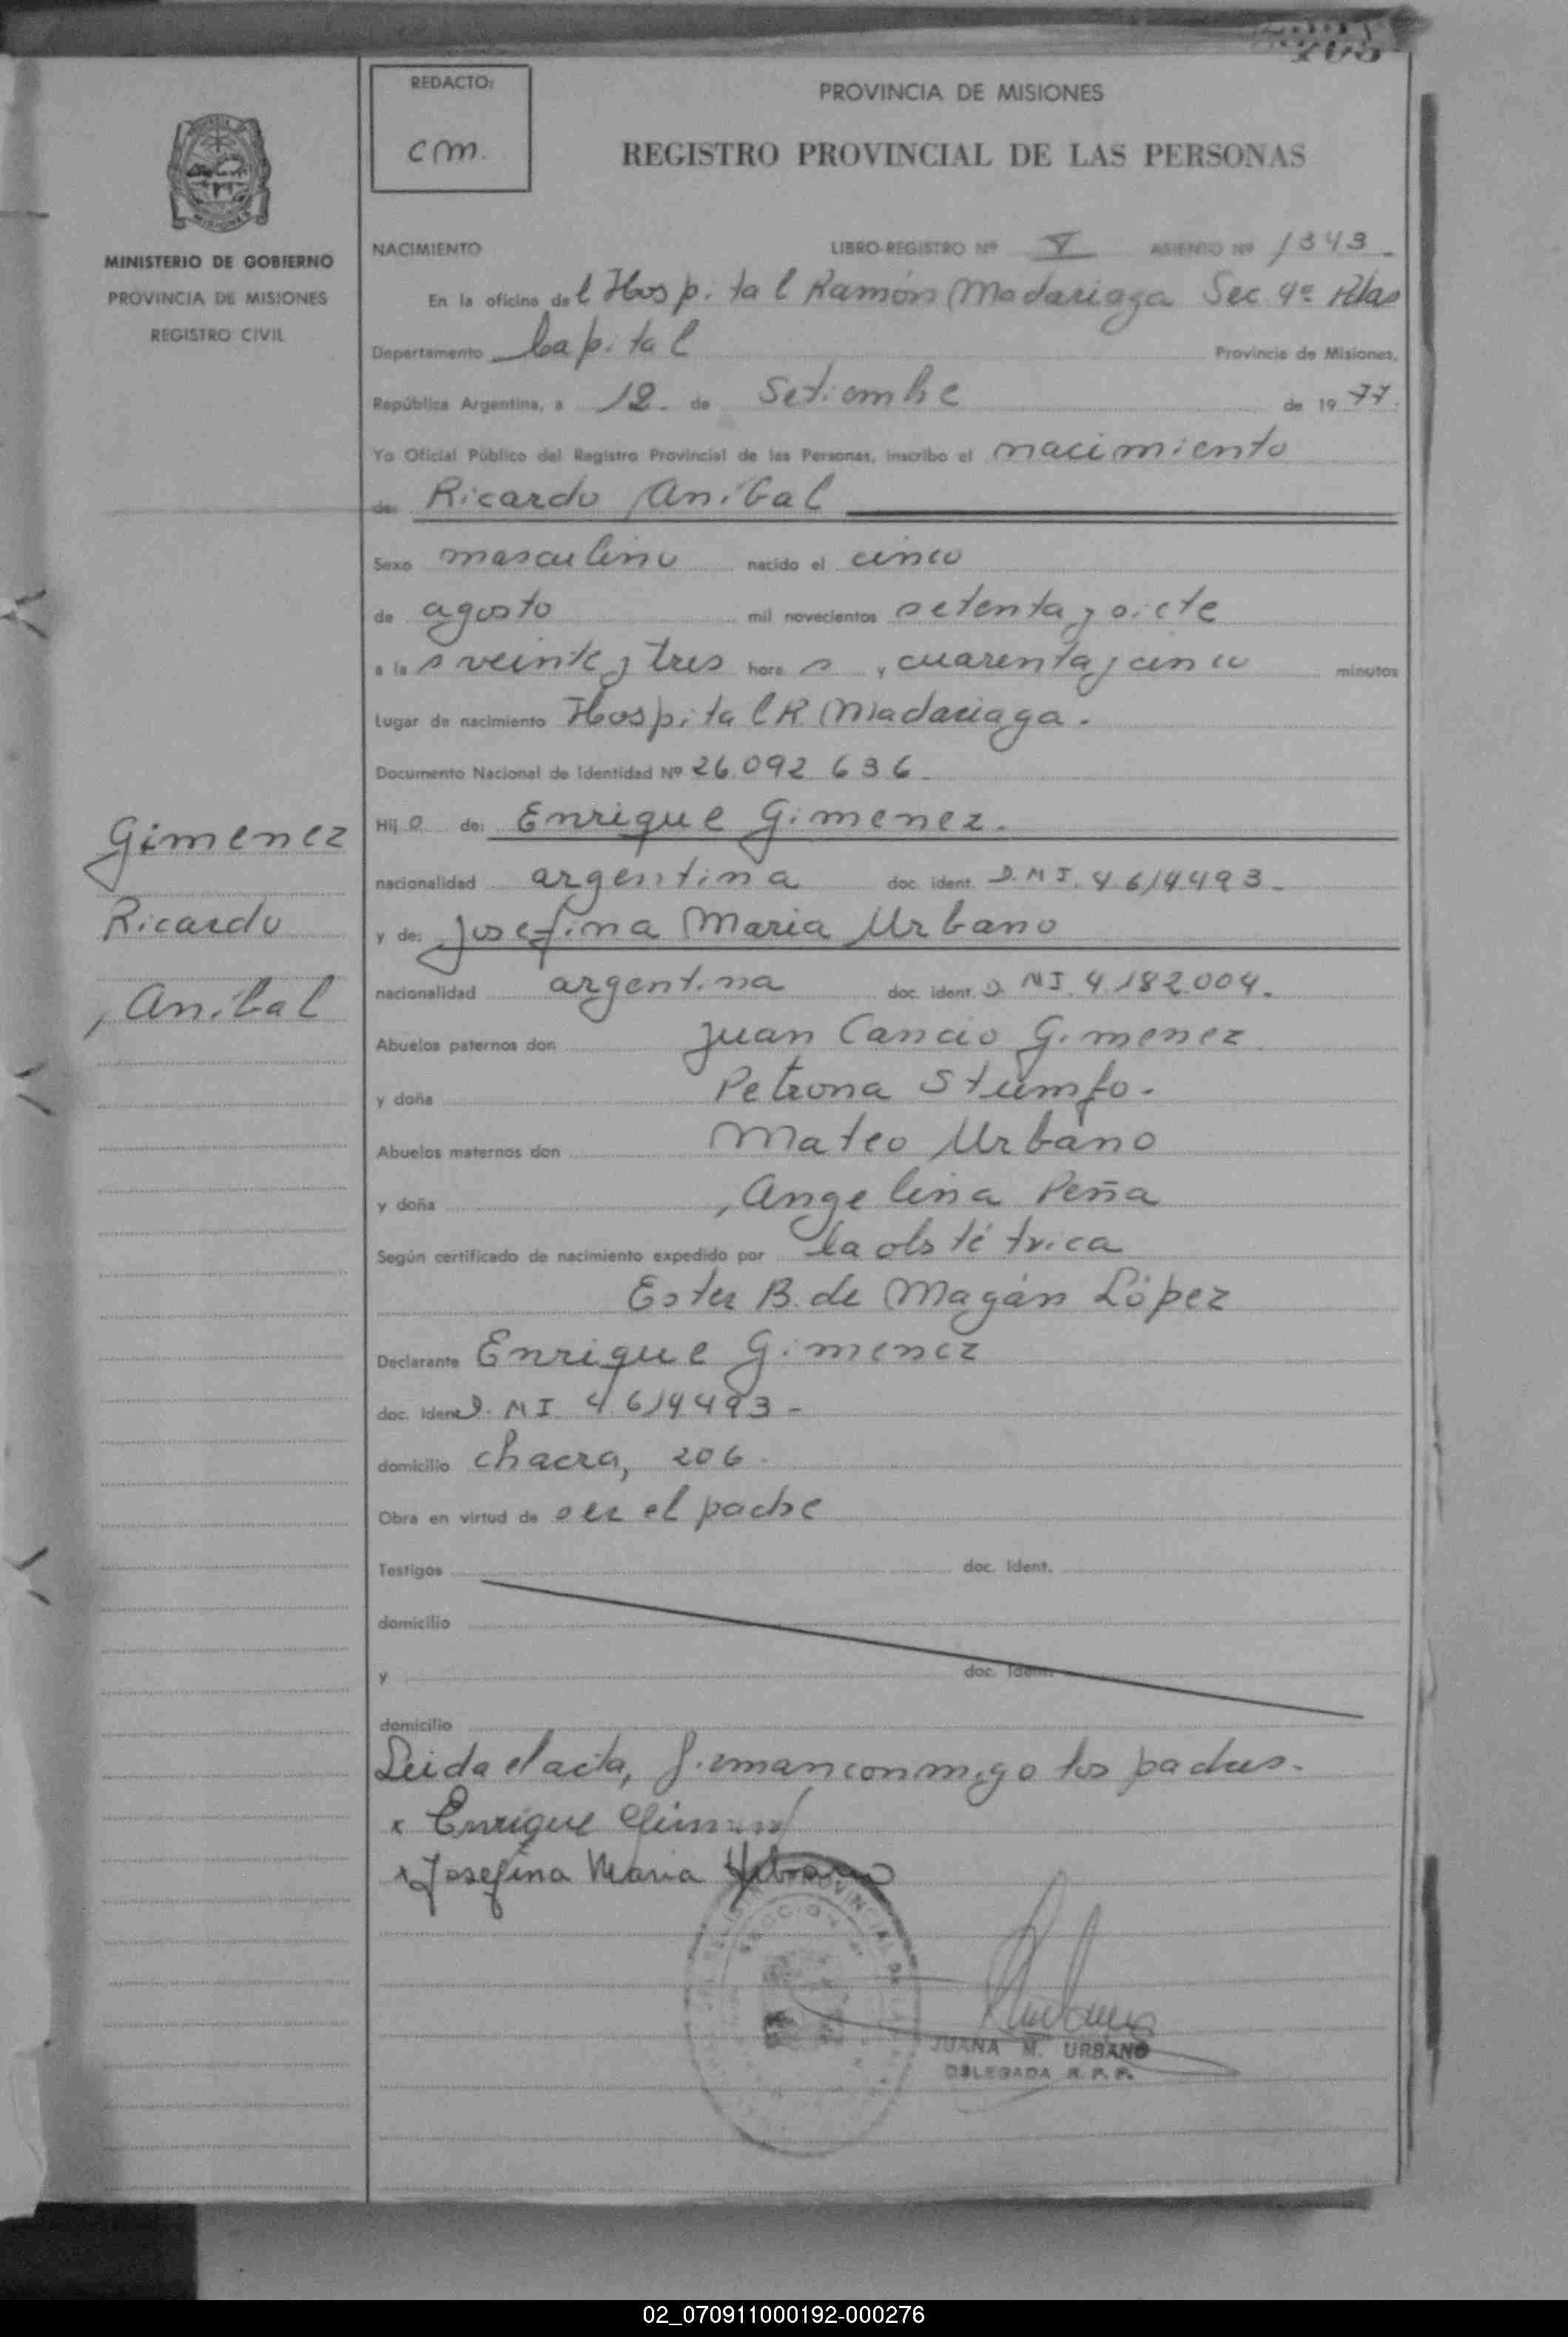 REDACTO:
cm.
PROVINCIA DE MISIONES
REGISTRO PROVINCIAL DE LAS PERSONAS
MINISTERIO DE GOBIERNO
PROVINCIA DE MISIONES
REGISTRO CIVIL
NACIMIENTO LIBRO-REGISTRO Nº V ASIENTO Nº 1343
En la oficina del Hospital Ramón Madariaga Sec 4º Pdas
Departamento Capital Provincia de Misiones,
República Argentina, a 12. de Setiembre de 1977.
Yo Oficial Público del Registro Provincial de las Personas, inscribo el nacimiento
de: Ricardo Anibal
Sexo masculino nacido el cinco
de agosto mil novecientos setenta y siete
a las veinte y tres horas y cuarenta y cinco minutos
Lugar de nacimiento Hospital R Madariaga.
Documento Nacional de Identidad Nº 26.092 636
Hijo de: Enrique Gimenez.
nacionalidad argentina doc. ident. D.M I. 4.614493-
y de: Josefina Maria Urbano
nacionalidad argentina doc. ident. D. NI. 4.182.004.
Abuelos paternos don Juan Cancio Gimenez
y doña Petrona Stumfo.
Abuelos maternos don Mateo Urbano
y doña Angelina Peña
Según certificado de nacimiento expedido por la obstétrica
Ester B. de Magán López
Declarante Enrique Gimenez
doc. Ident D. M I 4.614493-
domicilio chacra, 206.
Obra en virtud de ser el padre
Testigos doc. Ident.
domicilio
y doc. Ident.
domicilio
Leida el acta, firman conmigo los padres.
x Enrique Gimenez
x Josefina Maria Urbano
JUANA M. URBANO
DELEGADA R. P. P.
Gimenez
Ricardo
Anibal
02_070911000192-000276